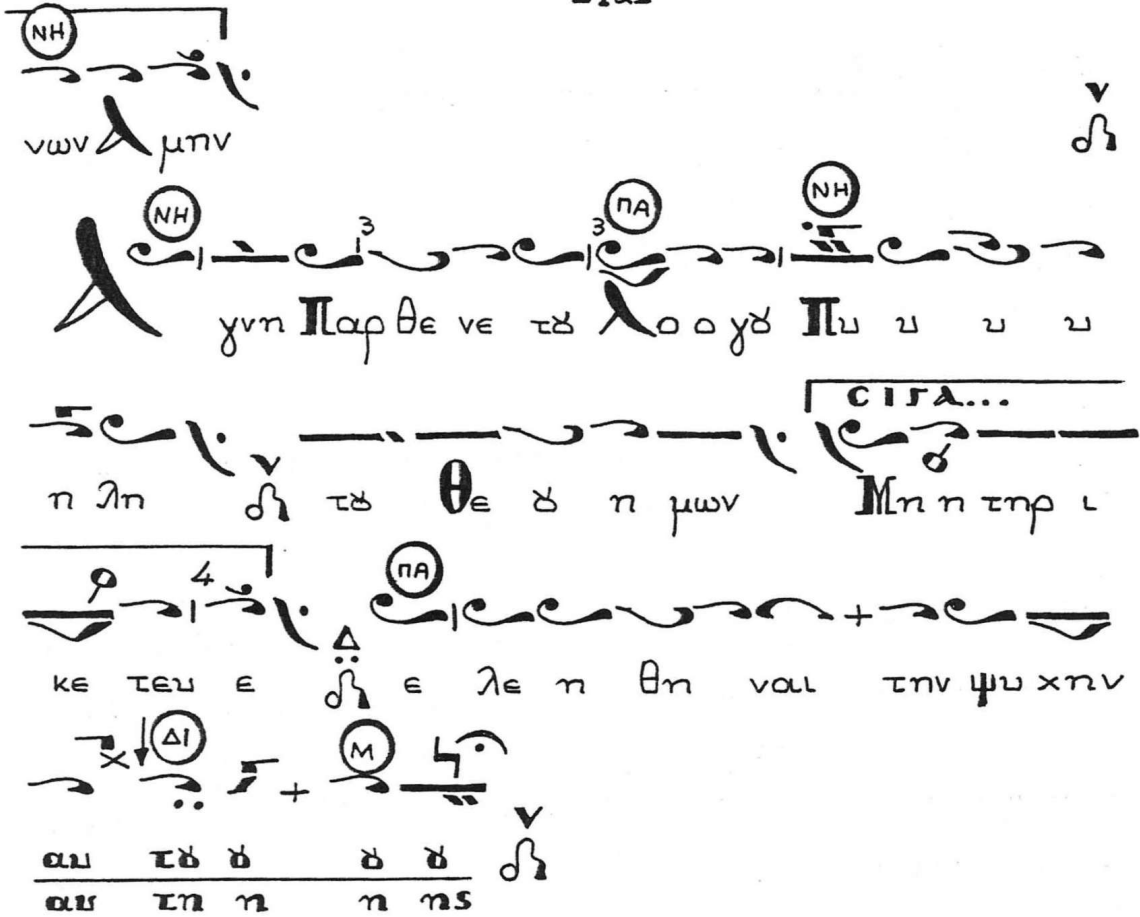 ΝΗ
νων Α μην
ν
ΝΗ 3 3 ΠΑ ΝΗ
Α γνη Παρ θε νε τȣ Λο ο γȣ Πυ υ υ υ
СΙΓΑ...
η λη ν τȣ Θε ȣ η μων Μη η τηρ ι
4 ΠΑ
κε τευ ε Δ ε λε η θη ναι την ψυ χην
ΔΙ Μ
αυ τȣ ȣ ȣ ȣ ν
αυ τη η η ης